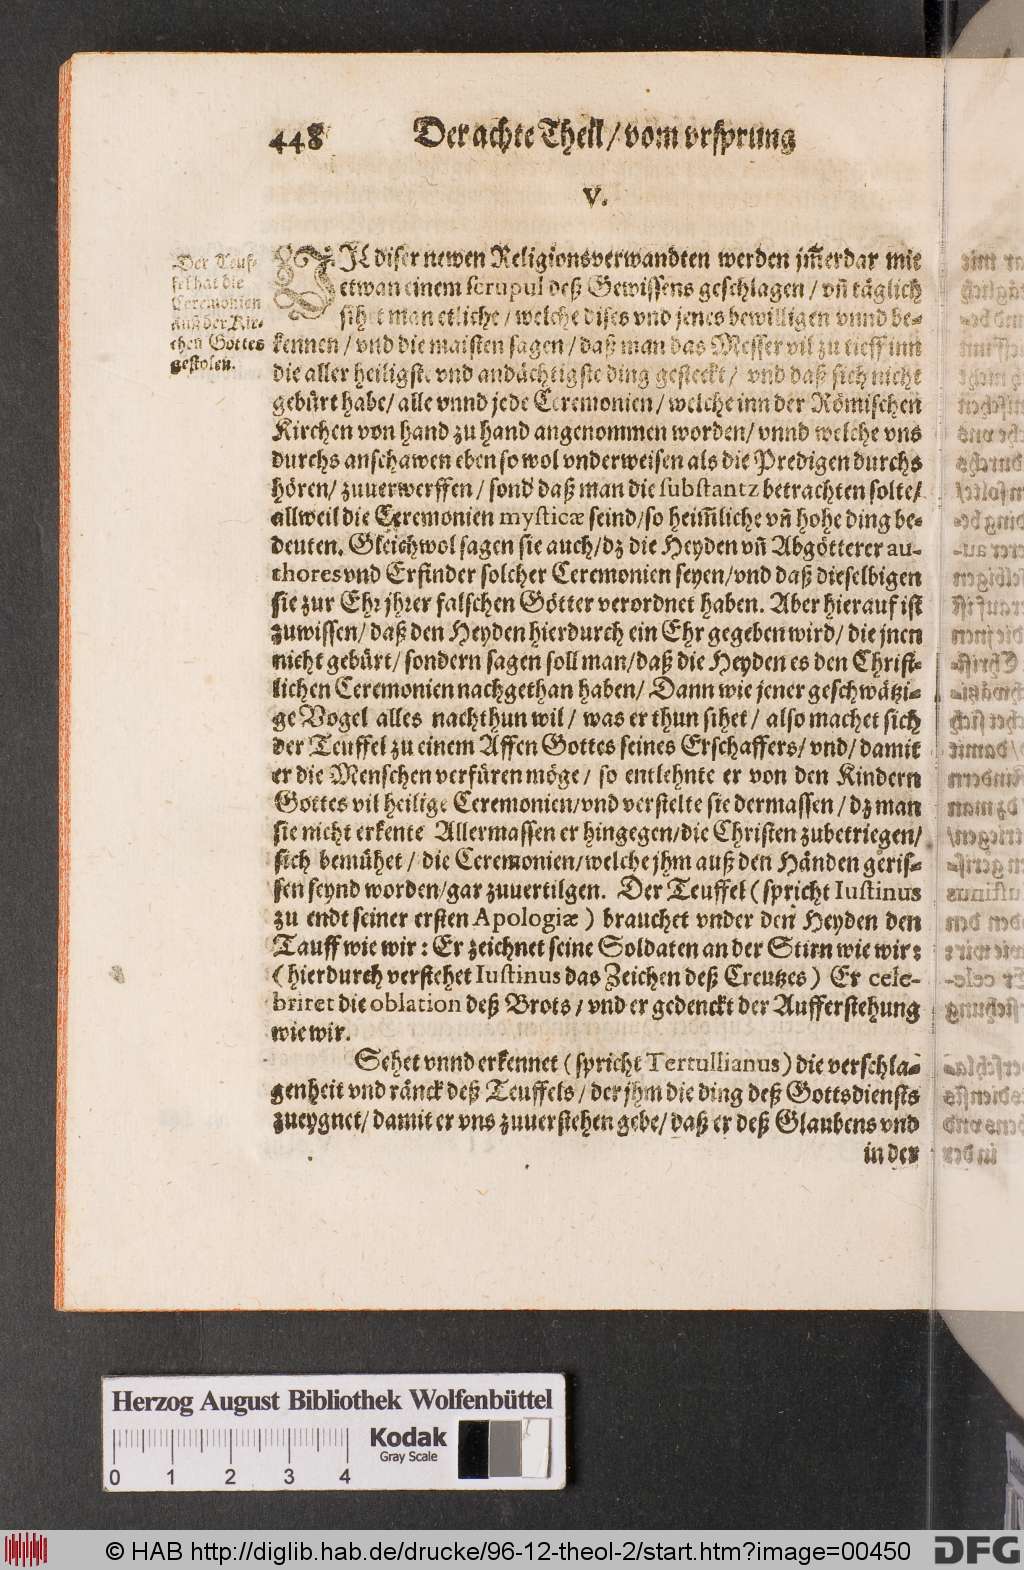 448 Der achte Theil / vom vrsprung
V.
Der Teuf-
fel hat die
Ceremonien
auß der Kir-
chen Gottes
gestolen.
VIl diser newen Religionsverwandten werden jm̃erdar mit
etwan einem scrupul deß Gewissens geschlagen / vñ täglich
sihet man etliche / welche dises vnd jenes bewilligen vnnd be-
kennen / vnd die maisten sagen / daß man das Messer vil zu tieff inn
die aller heiligste vnd andächtigste ding gesteckt / vnd daß sich nicht
gebürt habe / alle vnnd jede Ceremonien / welche inn der Römischen
Kirchen von hand zu hand angenommen worden / vnnd welche vns
durchs anschawen eben so wol vnderweisen als die Predigen durchs
hören / zuuerwerffen / sond daß man die substantz betrachten solte /
allweil die Ceremonien mysticæ seind / so heim̃liche vñ hohe ding be-
deuten. Gleichwol sagen sie auch / dz die Heyden vñ Abgötterer au-
thores vnd Erfinder solcher Ceremonien seyen / vnd daß dieselbigen
sie zur Ehr jhrer falschen Götter verordnet haben. Aber hierauf ist
zuwissen / daß den Heyden hierdurch ein Ehr gegeben wird / die jnen
nicht gebürt / sondern sagen soll man / daß die Heyden es den Christ-
lichen Ceremonien nachgethan haben / Dann wie jener geschwätzi-
ge Vogel alles nachthun wil / was er thun sihet / also machet sich
der Teuffel zu einem Affen Gottes seines Erschaffers / vnd / damit
er die Menschen verfüren möge / so entlehnte er von den Kindern
Gottes vil heilige Ceremonien / vnd verstelte sie dermassen / dz man
sie nicht erkente Allermassen er hingegen / die Christen zubetriegen /
sich bemühet / die Ceremonien / welche jhm auß den Händen geris-
sen seynd worden / gar zuuertilgen. Der Teuffel ( spricht Iustinus
zu endt seiner ersten Apologiæ ) brauchet vnder den Heyden den
Tauff wie wir : Er zeichnet seine Soldaten an der Stirn wie wir :
( hierdurch verstehet Iustinus das Zeichen deß Creutzes ) Er cele-
briret die oblation deß Brots / vnd er gedenckt der Aufferstehung
wie wir.
Sehet vnnd erkennet ( spricht Tertullianus ) die verschla-
genheit vnd ränck deß Teuffels / der jhm die ding deß Gottsdiensts
zueygnet / damit er vns zuuerstehen gebe / daß er deß Glaubens vnd
in der
Herzog August Bibliothek Wolfenbüttel
Kodak
Gray Scale
0 1 2 3 4
© HAB http://diglib.hab.de/drucke/96-12-theol-2/start.htm?image=00450
DFG